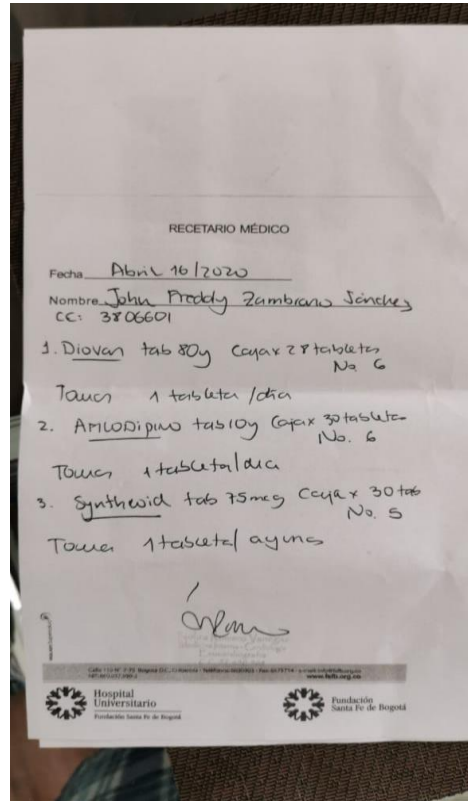 RECETARIO MÉDICO
Fecha Abril 16/2020
Nombre John Freddy Zambrano Sánchez
CC: 3806601
1. Diovan tab 80y Caja x 28 tabletas
No. 6
Tomar 1 tableta /día
2. Amlodipino tab 10y Caja x 30 tabletas
No. 6
Tomar 1 tableta/dia
3. Synthroid tab 75 mcg Caja x 30 tab
No. 5
Tomar 1 tableta/ ayunas
www.fsfb.org.co
Hospital
Universitario
Fundación Santa Fe de Bogotá
Fundación
Santa Fe de Bogotá